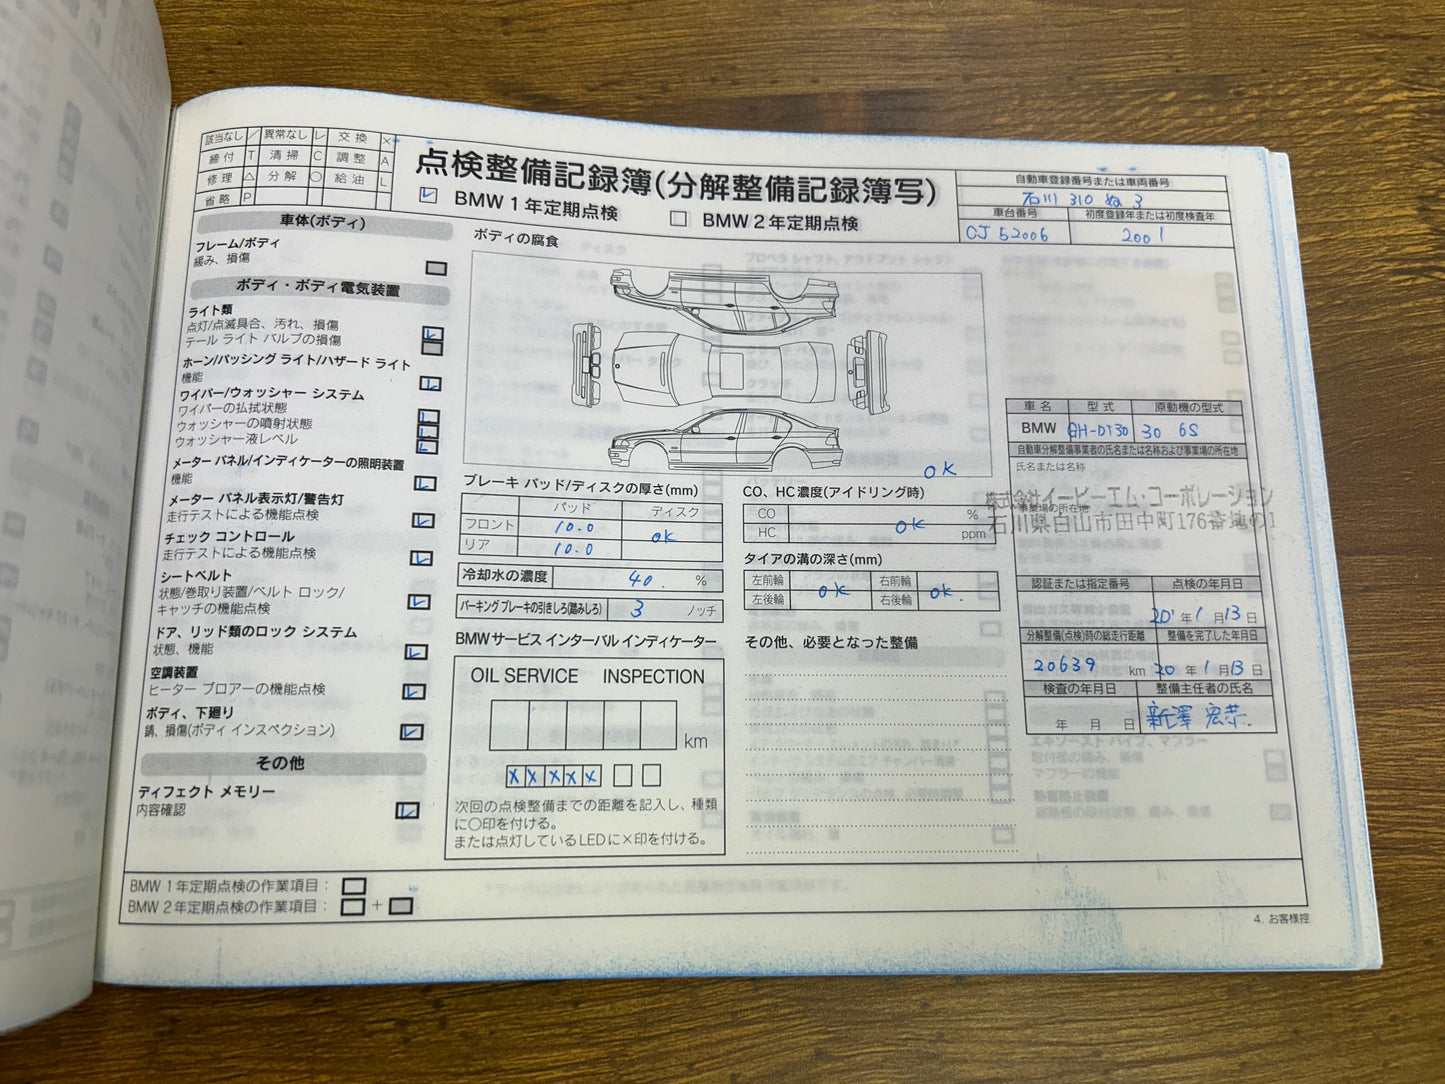 該当なし / 異常なし レ 交換 ×
締付 T 清掃 C 調整 A
修理 △ 分解 ○ 給油 L
省略 P
点検整備記録簿(分解整備記録簿写)
レ BMW 1年定期点検 BMW 2年定期点検
自動車登録番号または車両番号
石川 310 ぬ 3
車台番号 初度登録年または初度検査年
CJ 52006 2001
車体(ボディ)
フレーム/ボディ
緩み、損傷
ボディ・ボディ電気装置
ライト類
点灯/点滅具合、汚れ、損傷 レ
テール ライト バルブの損傷
ホーン/パッシング ライト/ハザード ライト
機能 レ
ワイパー/ウォッシャー システム
ワイパーの払拭状態 レ
ウォッシャーの噴射状態 レ
ウォッシャー液レベル レ
メーター パネル/インディケーターの照明装置
機能 レ
メーター パネル表示灯/警告灯
走行テストによる機能点検 レ
チェック コントロール
走行テストによる機能点検 レ
シートベルト
状態/巻取り装置/ベルト ロック/
キャッチの機能点検 レ
ドア、リッド類のロック システム
状態、機能 レ
空調装置
ヒーター ブロアーの機能点検 レ
ボディ、下廻り
錆、損傷(ボディ インスペクション) レ
その他
ディフェクト メモリー
内容確認 レ
ボディの腐食
OK
ブレーキ パッド/ディスクの厚さ(mm)
パッド ディスク
フロント 10.0
OK
リア 10.0
冷却水の濃度 40. %
パーキング ブレーキの引きしろ(踏みしろ) 3 ノッチ
BMWサービス インターバル インディケーター
OIL SERVICE INSPECTION
km
× × × × ×
次回の点検整備までの距離を記入し、種類
に○印を付ける。
または点灯しているLEDに×印を付ける。
CO、HC濃度(アイドリング時)
CO %
OK
HC ppm
タイアの溝の深さ(mm)
左前輪 右前輪
OK OK.
左後輪 右後輪
その他、必要となった整備
車名 型式 原動機の型式
BMW GH-DT30 30 6S
自動車分解整備事業者の氏名または名称および事業場の所在地
氏名または名称
株式会社イービーエム・コーポレーション
事業場の所在地
石川県白山市田中町176番地の1
認証または指定番号 点検の年月日
20' 年 1 月 13 日
分解整備(点検)時の総走行距離 整備を完了した年月日
20639 km 20 年 1 月 13 日
検査の年月日 整備主任者の氏名
年 月 日 新澤 宏恭.
BMW 1年定期点検の作業項目:
BMW 2年定期点検の作業項目: +
4. お客様控